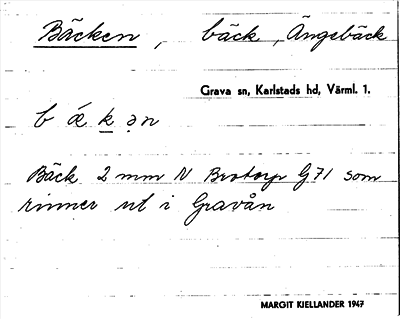 Bäcken, bäck, Ängsbäck
Grava sn, Karlstads hd, Värml. 1.
b ǽ k ə n
Bäck 2 mm N Brotorp G71 som
rinner ut i Gravån
MARGIT KJELLANDER 1947